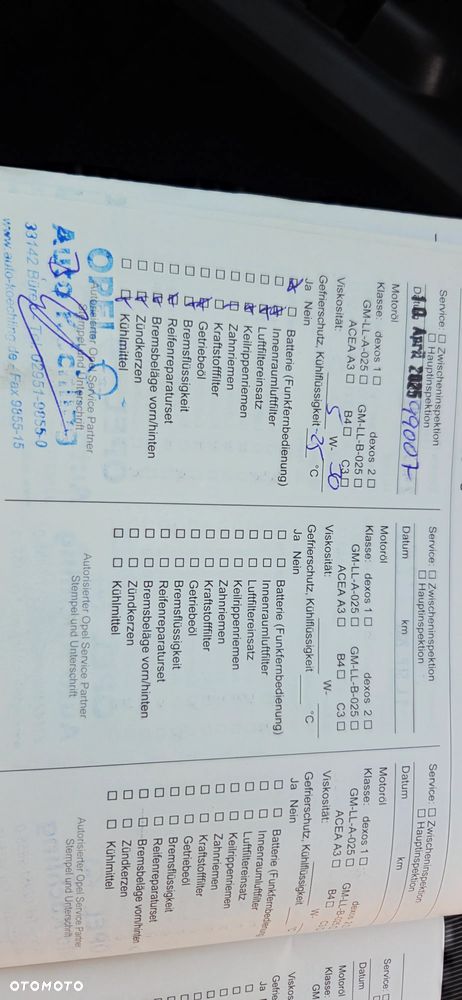 Service: ☐ Zwischeninspektion
☐ Hauptinspektion
Datum 10. April 2025 99007
Motoröl
Klasse: dexos 1 ☐ dexos 2 ☐
GM-LL-A-025 ☐ GM-LL-B-025 ☐
ACEA A3 ☐ B4 ☐ C3 ☐
Viskosität: 5 W- 30
Gefrierschutz, Kühlflüssigkeit -25 °C
Ja Nein
☒ ☐ Batterie (Funkfernbedienung)
☐ ☒ Innenraumluftfilter
☐ ☒ Luftfiltereinsatz
☐ ☒ Keilrippenriemen
☐ ☒ Zahnriemen
☐ ☒ Kraftstofffilter
☐ ☒ Getriebeöl
☐ ☒ Bremsflüssigkeit
☐ ☒ Reifenreparaturset
☐ ☒ Bremsbeläge vorn/hinten
☐ ☒ Zündkerzen
☐ ☒ Kühlmittel
Autorisierter Opel Service Partner
Stempel und Unterschrift
OPEL
33142 Büren
www.auto-koechling.de
Service: ☐ Zwischeninspektion
☐ Hauptinspektion
Datum km
Motoröl
Klasse: dexos 1 ☐ dexos 2 ☐
GM-LL-A-025 ☐ GM-LL-B-025 ☐
ACEA A3 ☐ B4 ☐ C3 ☐
Viskosität: W-
Gefrierschutz, Kühlflüssigkeit °C
Ja Nein
☐ ☐ Batterie (Funkfernbedienung)
☐ ☐ Innenraumluftfilter
☐ ☐ Luftfiltereinsatz
☐ ☐ Keilrippenriemen
☐ ☐ Zahnriemen
☐ ☐ Kraftstofffilter
☐ ☐ Getriebeöl
☐ ☐ Bremsflüssigkeit
☐ ☐ Reifenreparaturset
☐ ☐ Bremsbeläge vorn/hinten
☐ ☐ Zündkerzen
☐ ☐ Kühlmittel
Autorisierter Opel Service Partner
Stempel und Unterschrift
Service: ☐ Zwischeninspektion
☐ Hauptinspektion
Datum km
Motoröl
Klasse: dexos 1 ☐ dexos
GM-LL-A-025 ☐ GM-LL-B-025
ACEA A3 ☐ B4 ☐
Viskosität: W-
Gefrierschutz, Kühlflüssigkeit °C
Ja Nein
☐ ☐ Batterie (Funkfernbedienung
☐ ☐ Innenraumluftfilter
☐ ☐ Luftfiltereinsatz
☐ ☐ Keilrippenriemen
☐ ☐ Zahnriemen
☐ ☐ Kraftstofffilter
☐ ☐ Getriebeöl
☐ ☐ Bremsflüssigkeit
☐ ☐ Reifenreparaturset
☐ ☐ Bremsbeläge vorn/hinten
☐ ☐ Zündkerzen
☐ ☐ Kühlmittel
Autorisierter Opel Service Partner
Stempel und Unterschrift
Service: ☐
Datum
Motoröl
Klasse:
GM-LL
Viskosität:
Gefrie
Ja
OTOMOTO